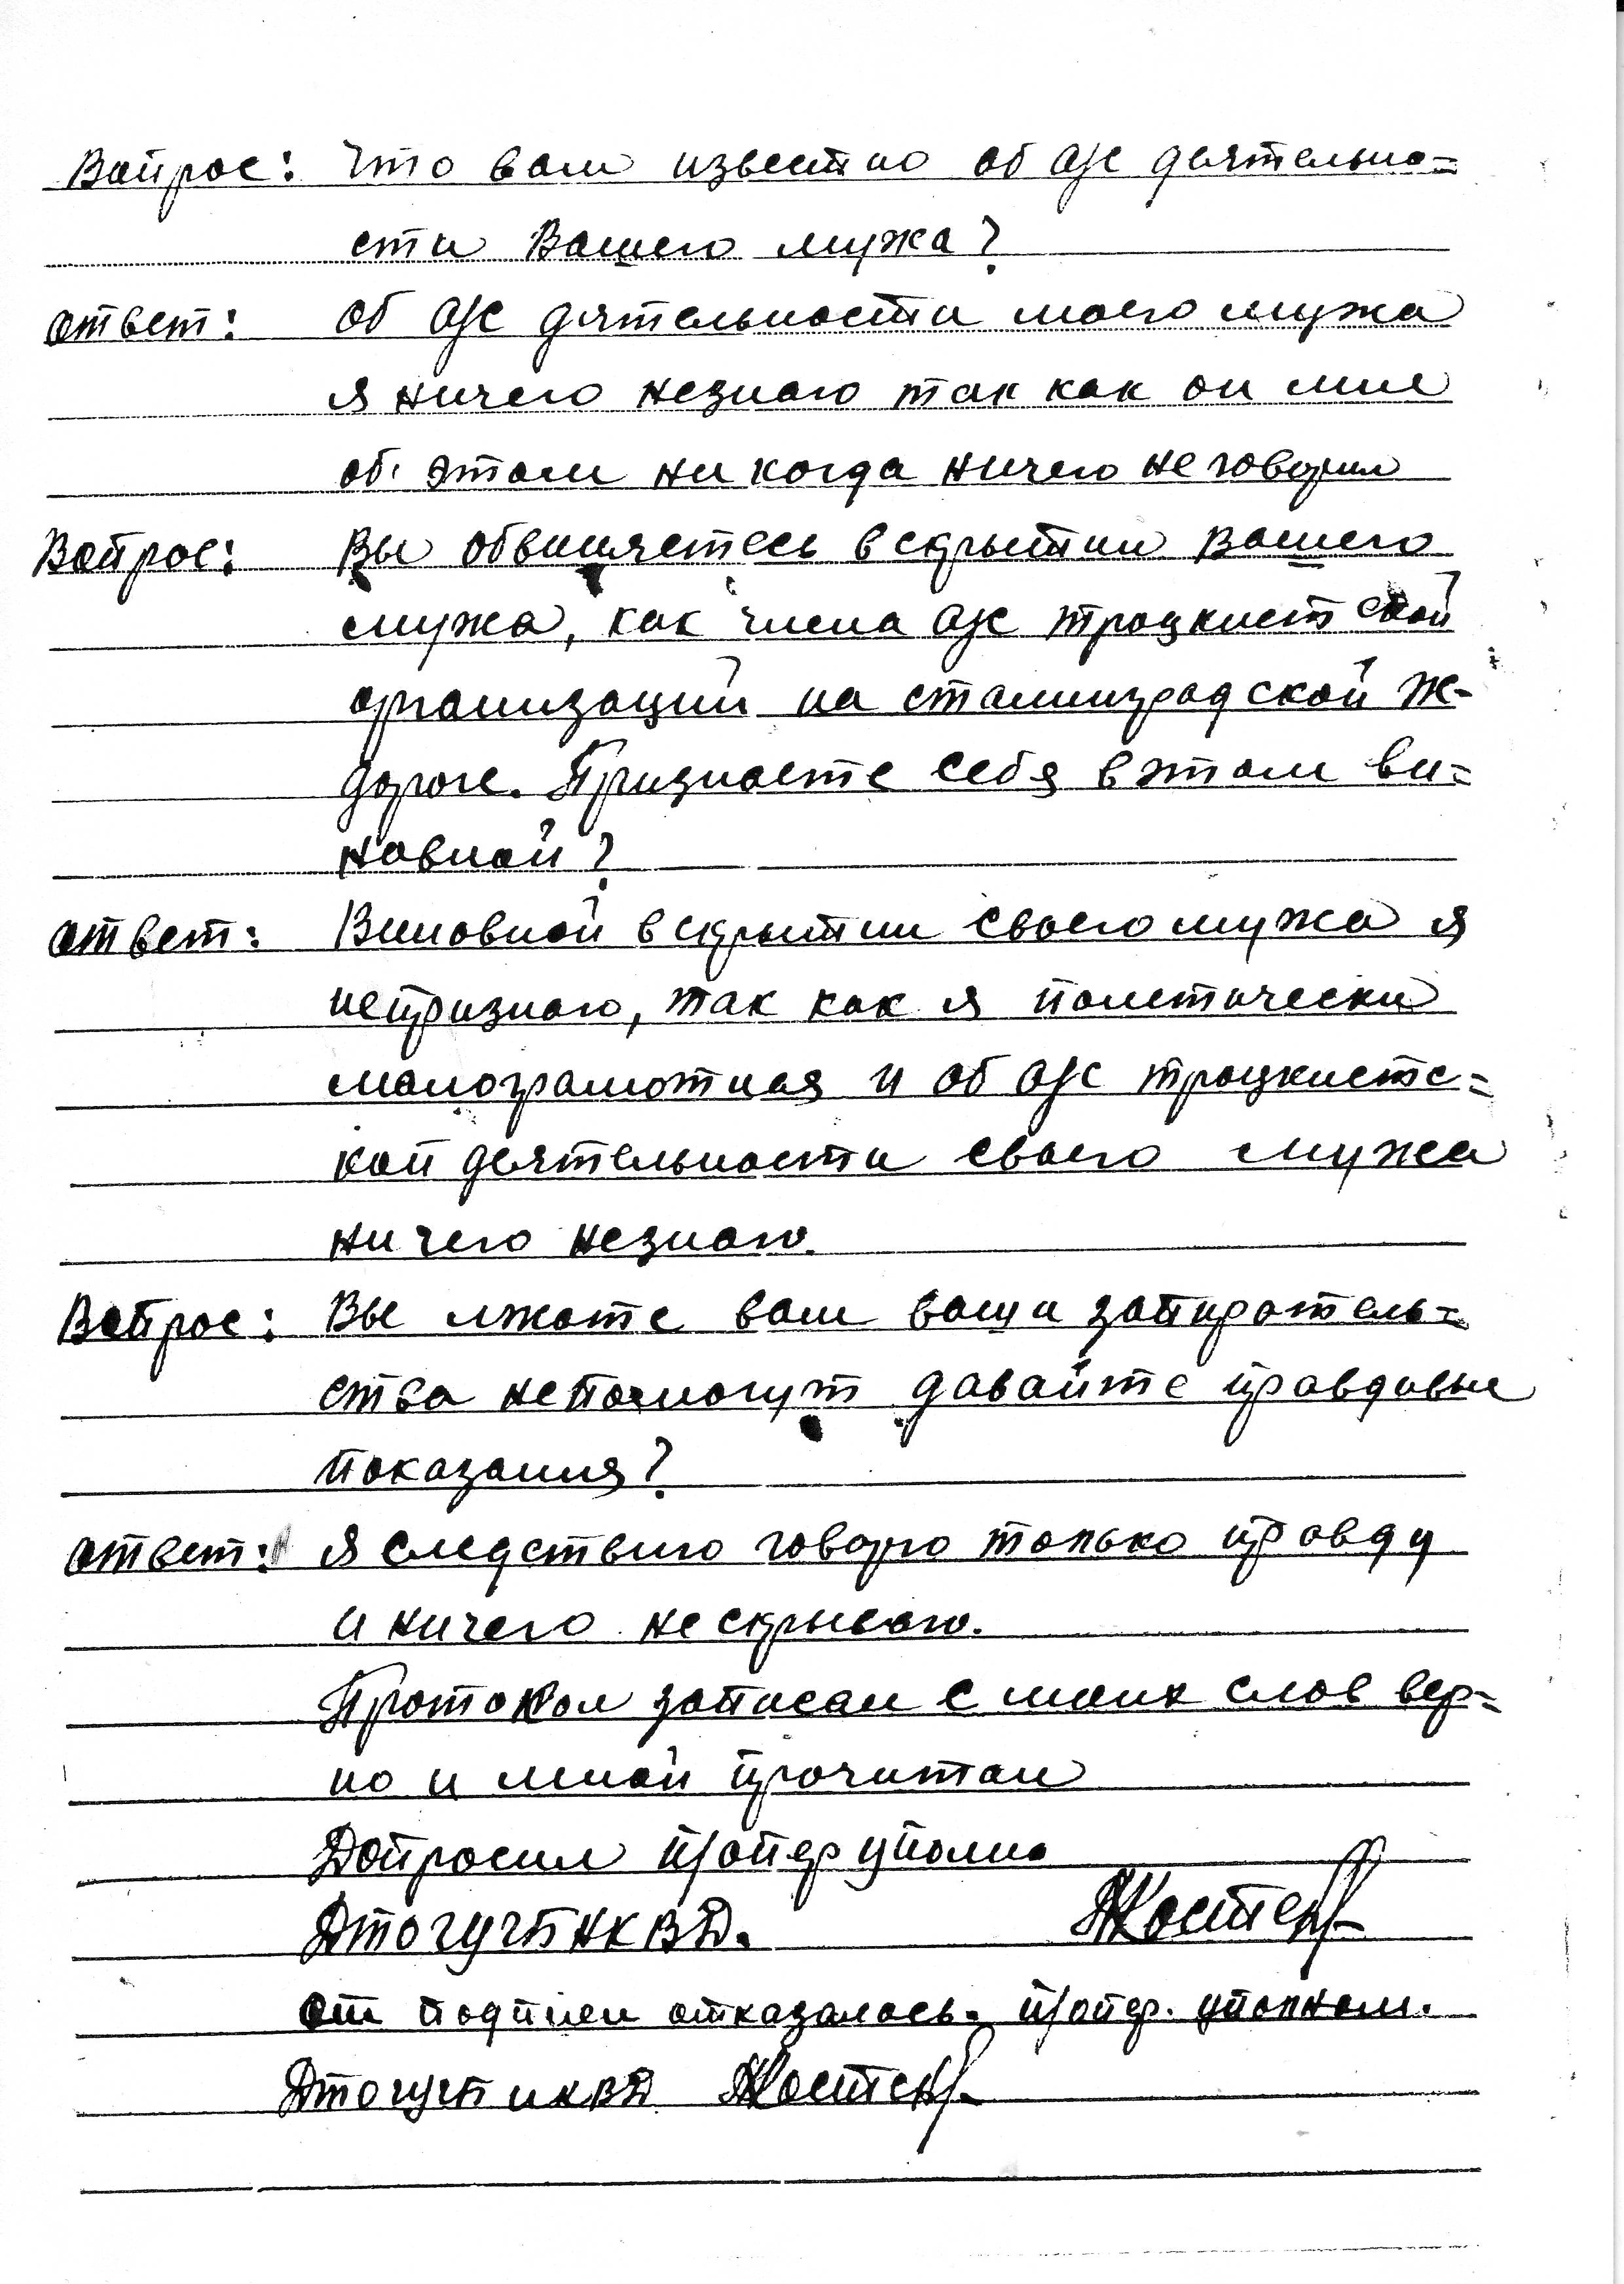 Вопрос: Что вам известно об а/с деятельно=
сти Вашего мужа?
ответ: об а/с деятельности моего мужа
я ничего незнаю так как он мне
об этом ни когда ничего не говорил
Вопрос: Вы обвиняетесь в скрытии Вашего
мужа, как члена а/с троцкистской
организаций на сталинградской ж-
дороге. Признаете себя в этом ви=
новной?
ответ: Виновной в скрытии своего мужа я
непризнаю, так как я полетически
малограмотная и об а/с троцкистс=
кой деятельности своего мужа
ни чего незнаю.
Вопрос: Вы лжоте вам ваши запиратель=
ства непомогут давайте правдивые
показания?
ответ: я следствию говорю только правду
и ничего не скрываю.
Протокол записан с моих слов вер=
но и мной прочитан
Допросил п/опер уполно
ДТОГУГБНКВД.
от подписи отказалась. п/опер. уполном.
ДТОГУГБ НКВД